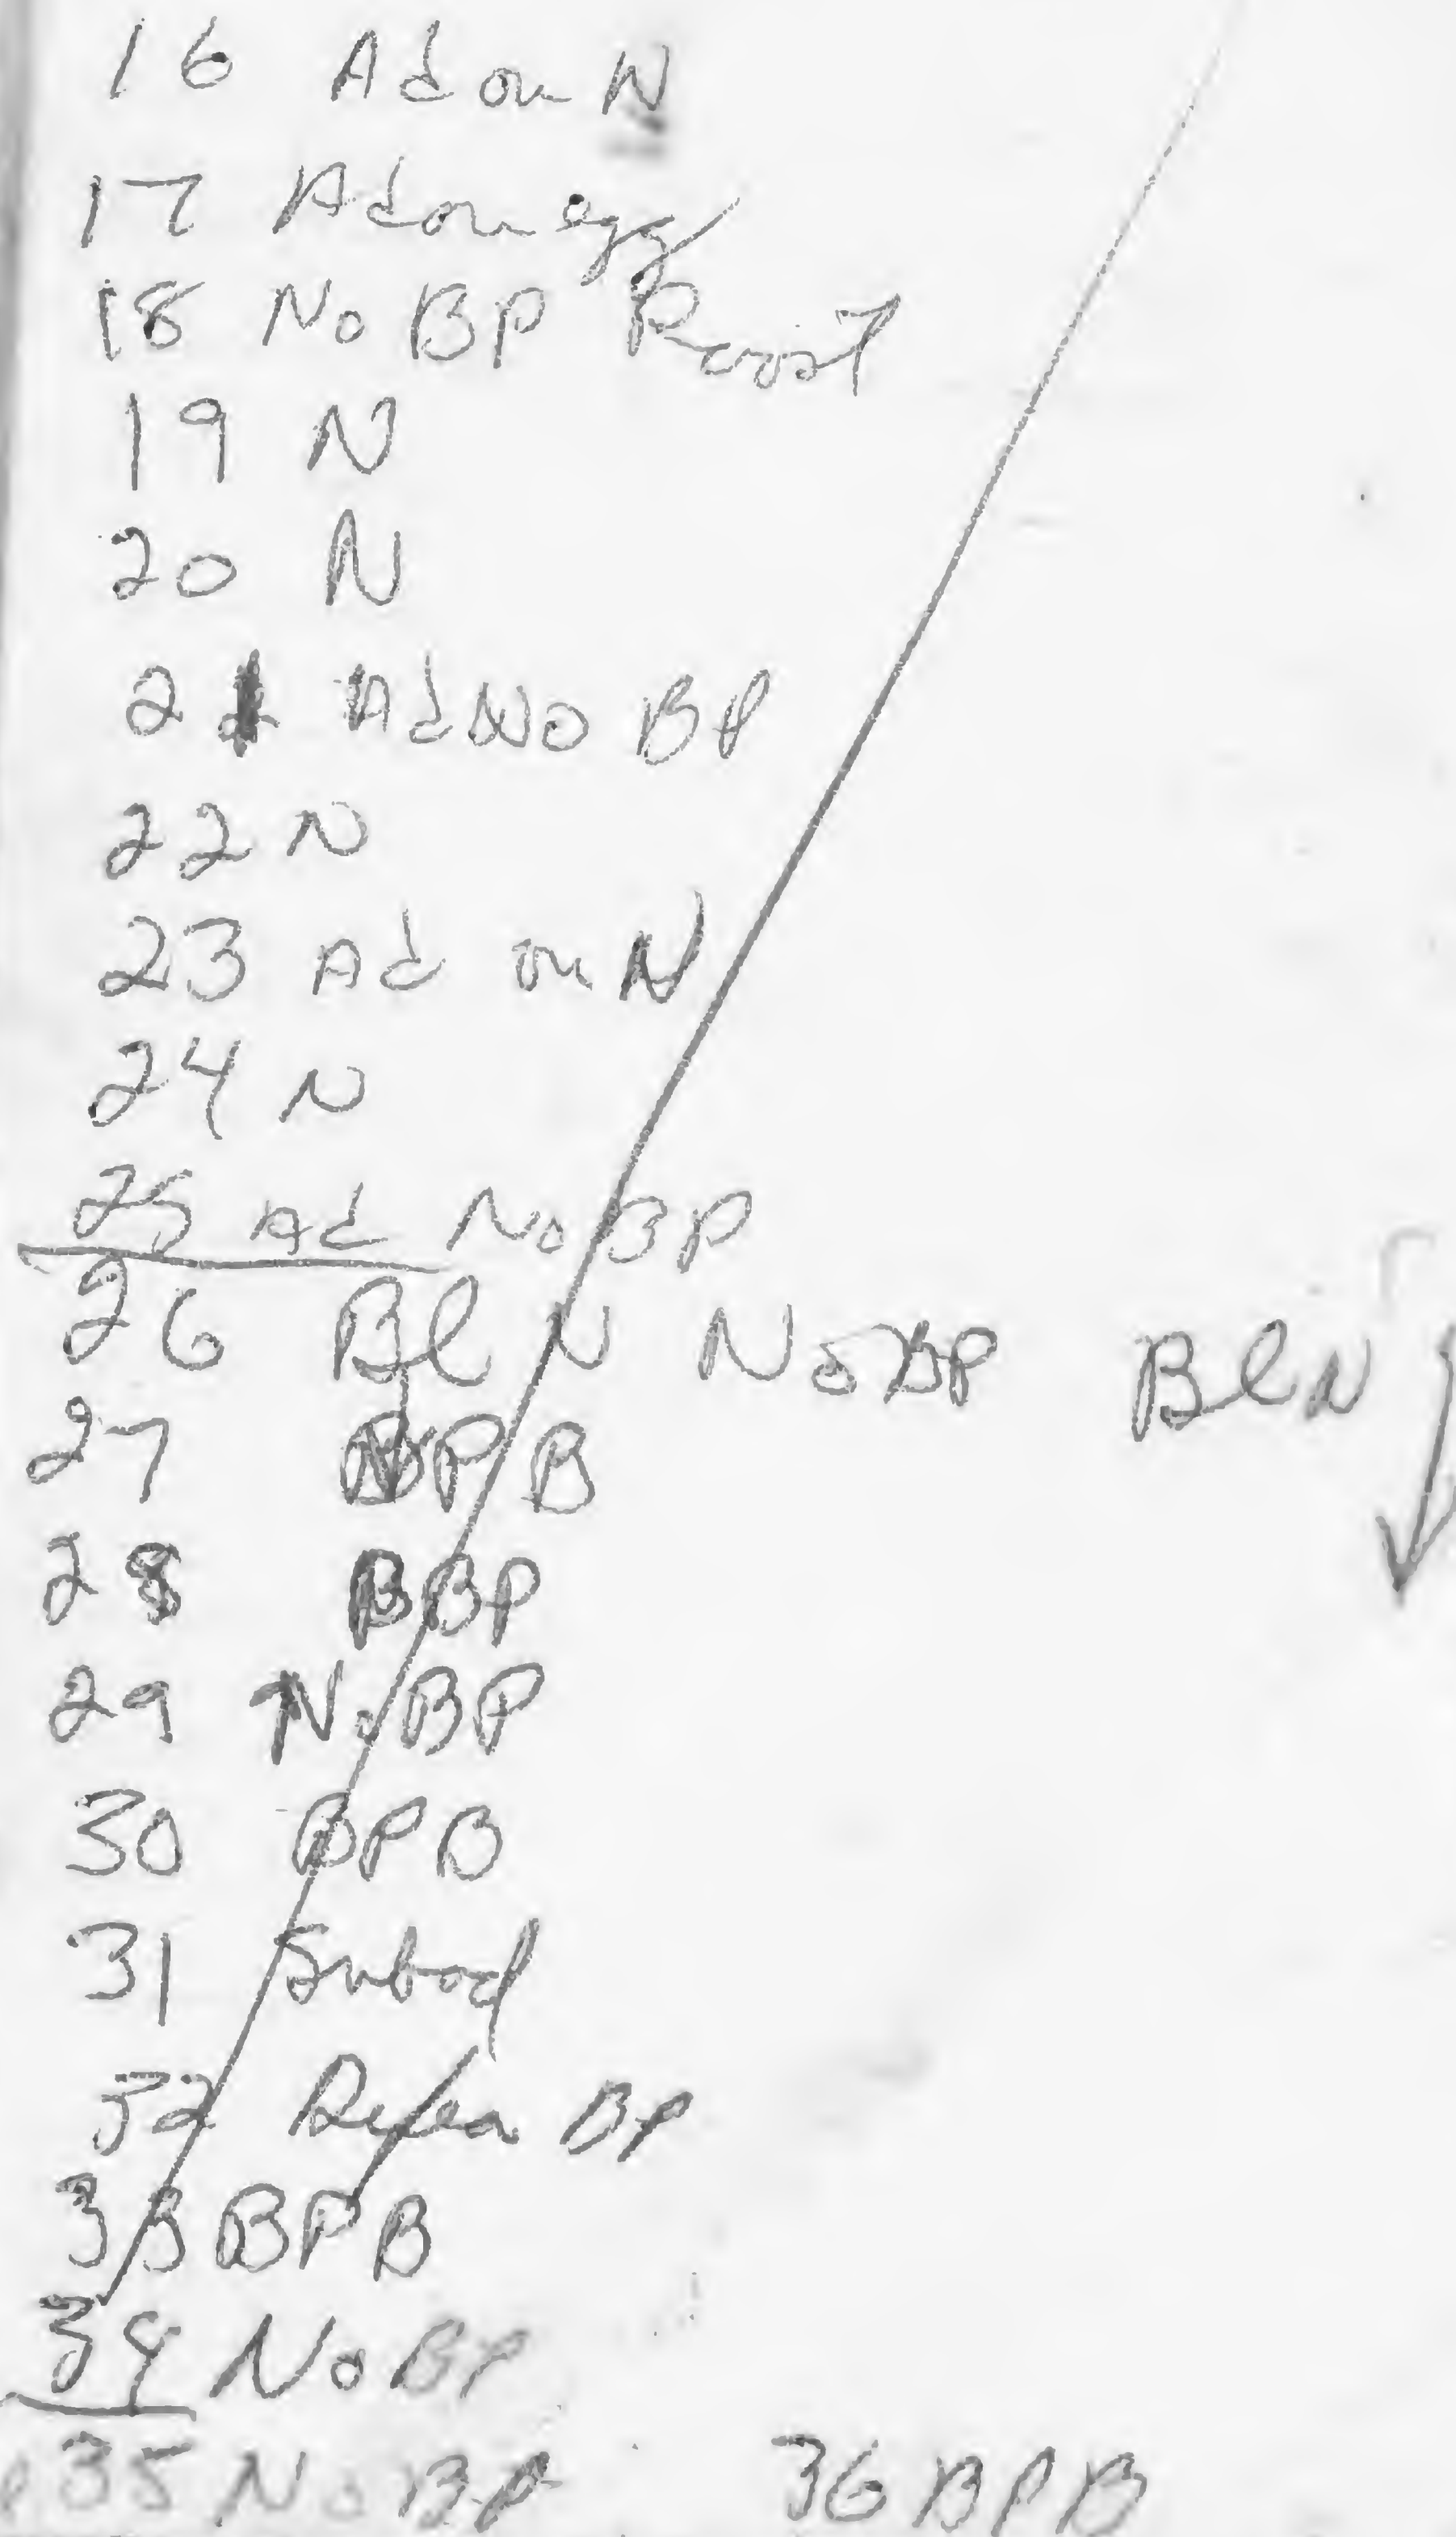 16 Ad on N
17 Ad on egg
18 No BP Roost
19 N
20 N
21 Ad No BP
22 N
23 Ad on N
24 N
25 Ad No BP
26 Bl N No BP Bl N
27 BPB
28 BBP
29 No BP
30 BPB
31 Subad
32 BP
33 BPB
34 No BP
35 No BP 36 BPB